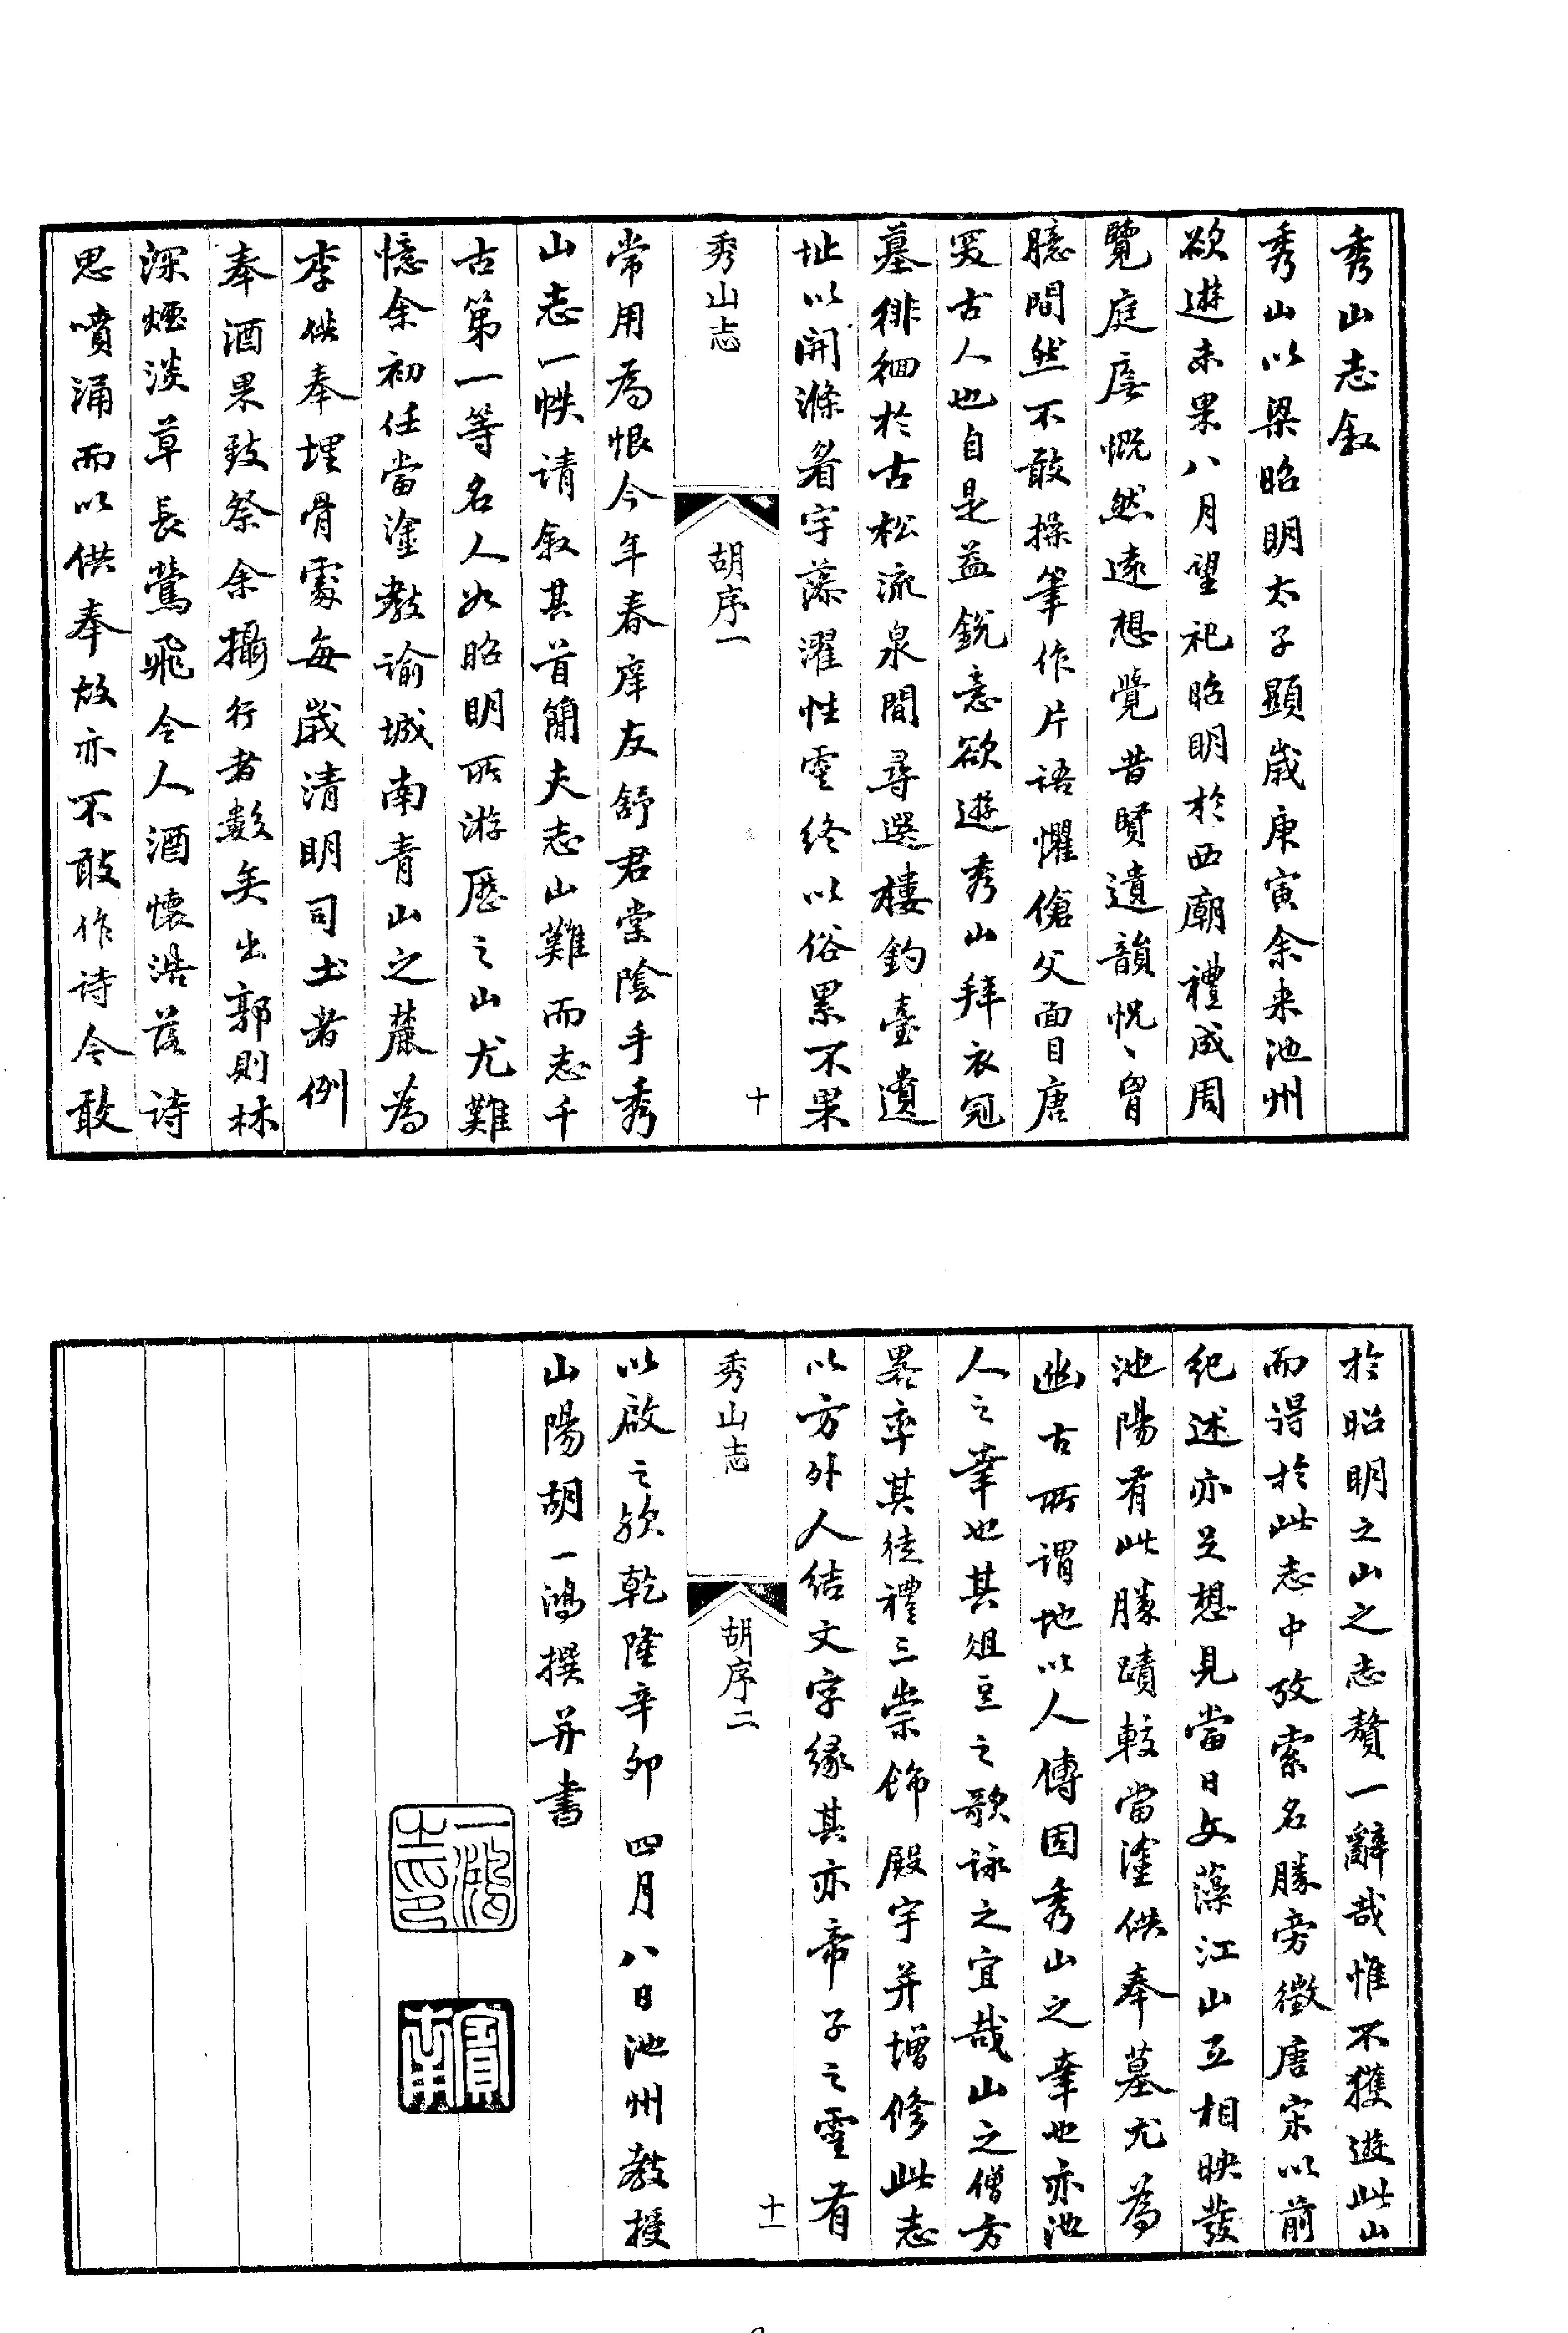 秀山志叙
秀山以梁昭明太子顯歲庚寅余来池州
欲遊未果八月望祀昭明於西廟禮成周
覽庭廡慨然遠想覺昔賢遺韻怳〻胷
臆間然不敢操筆作片語懼傖父面目唐
突古人也自是益銳意欲遊秀山拜衣冠
墓徘徊於古松流泉間尋選樓釣臺遺
址以開滌眉宇藻濯性靈終以俗累不果
秀山志
胡序一
十
常用為恨今年春庠友舒君棠陰手秀
山志一帙请叙其首簡夫志山難而志千
古第一等名人如昭明所游歷之山尤難
憶余初任當塗教諭城南青山之麓為
李供奉埋骨處每歲清明司土者例
奉酒果致祭余攝行者數矣出郭則林
深煙淡草長鶯飛令人酒懷浩落诗
思噴涌而以供奉故亦不敢作诗今敢
於昭明之山之志贅一辭哉惟不獲遊此山
而得於此志中攷索名勝旁徵唐宋以前
紀述亦足想見當日文藻江山互相映發
池陽有此勝蹟較當塗供奉墓尤為
幽古所謂地以人傳固秀山之幸也亦池
人之幸也其俎豆之歌詠之宜哉山之僧方
畧率其徒禮三崇飾殿宇并增修此志
以方外人结文字缘其亦帝子之靈有
秀山志
胡序二
十一
以啟之欤乾隆辛卯四月八日池州教授
山陽胡一鴻撰并書
一鴻之印
賓南